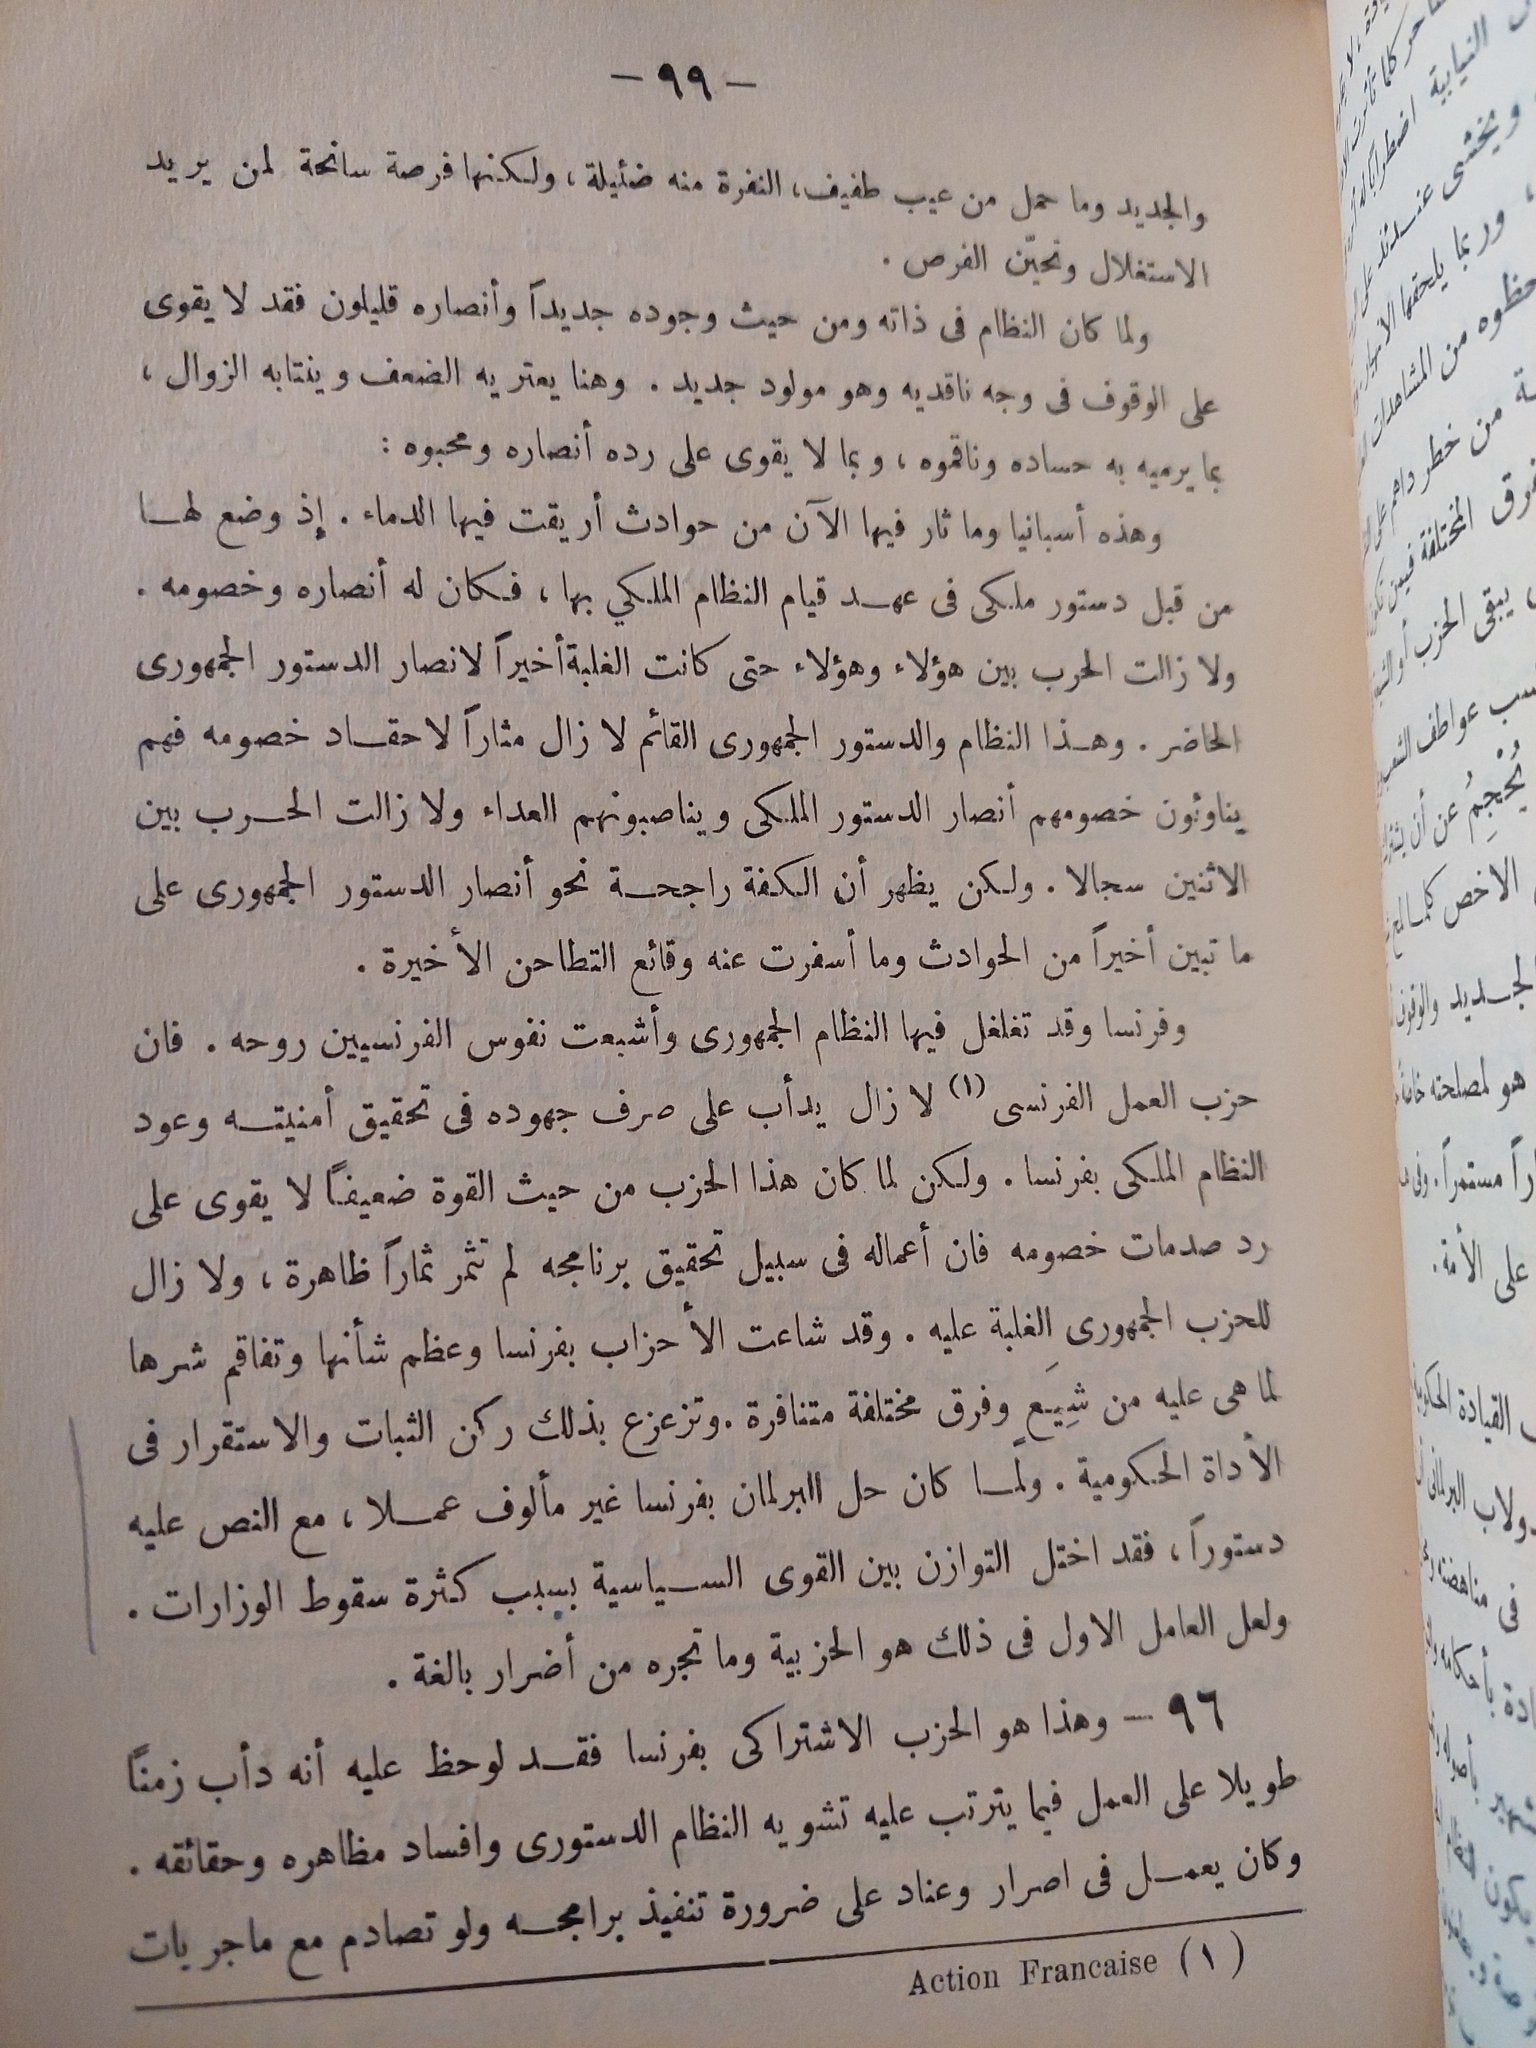 — ٩٩ —
والجديد وما حمل من عيب طفيف، النفرة منه ضئيلة، ولكنها فرصة سانحة لمن يريد
الاستغلال وتحيّن الفرص .
ولما كان النظام فى ذاته ومن حيث وجوده جديداً وأنصاره قليلون فقد لا يقوى
على الوقوف فى وجه ناقديه وهو مولود جديد . وهنا يعتريه الضعف وينتابه الزوال ،
بما يرميه به حساده وناقموه ، وبما لا يقوى على رده أنصاره ومحبوه :
وهذه أسبانيا وما ثار فيها الآن من حوادث أريقت فيها الدماء . إذ وضع لها
من قبل دستور ملكى فى عهد قيام النظام الملكي بها ، فكان له أنصاره وخصومه .
ولا زالت الحرب بين هؤلاء وهؤلاء حتى كانت الغلبة أخيراً لانصار الدستور الجمهورى
الحاضر . وهذا النظام والدستور الجمهورى القائم لا زال مثاراً لاحقاد خصومه فهم
يناوئون خصومهم أنصار الدستور الملكى ويناصبونهم العداء ولا زالت الحرب بين
الاثنين سجالا . ولكن يظهر أن الكفة راجحة نحو أنصار الدستور الجمهورى على
ما تبين أخيراً من الحوادث وما أسفرت عنه وقائع التطاحن الأخيرة .
وفرنسا وقد تغلغل فيها النظام الجمهورى وأشبعت نفوس الفرنسيين روحه . فان
حزب العمل الفرنسى (١) لا زال يدأب على صرف جهوده فى تحقيق أمنيته وعود
النظام الملكى بفرنسا . ولكن لما كان هذا الحزب من حيث القوة ضعيفاً لا يقوى على
رد صدمات خصومه فان أعماله فى سبيل تحقيق برنامجه لم تثمر ثماراً ظاهرة ، ولا زال
للحزب الجمهورى الغلبة عليه . وقد شاعت الأحزاب بفرنسا وعظم شأنها وتفاقم شرها
لما هى عليه من شِيَع وفرق مختلفة متنافرة . وتزعزع بذلك ركن الثبات والاستقرار فى
الأداة الحكومية . ولمّا كان حل البرلمان بفرنسا غير مألوف عملا ، مع النص عليه
دستوراً ، فقد اختل التوازن بين القوى السياسية بسبب كثرة سقوط الوزارات .
ولعل العامل الاول فى ذلك هو الحزبية وما تجره من أضرار بالغة .
٩٦ — وهذا هو الحزب الاشتراكى بفرنسا فقد لوحظ عليه أنه دأب زمناً
طويلا على العمل فيما يترتب عليه تشويه النظام الدستورى وافساد مظاهره وحقائقه .
وكان يعمل فى اصرار وعناد على ضرورة تنفيذ برامجه ولو تصادم مع ماجريات
(١) Action Francaise